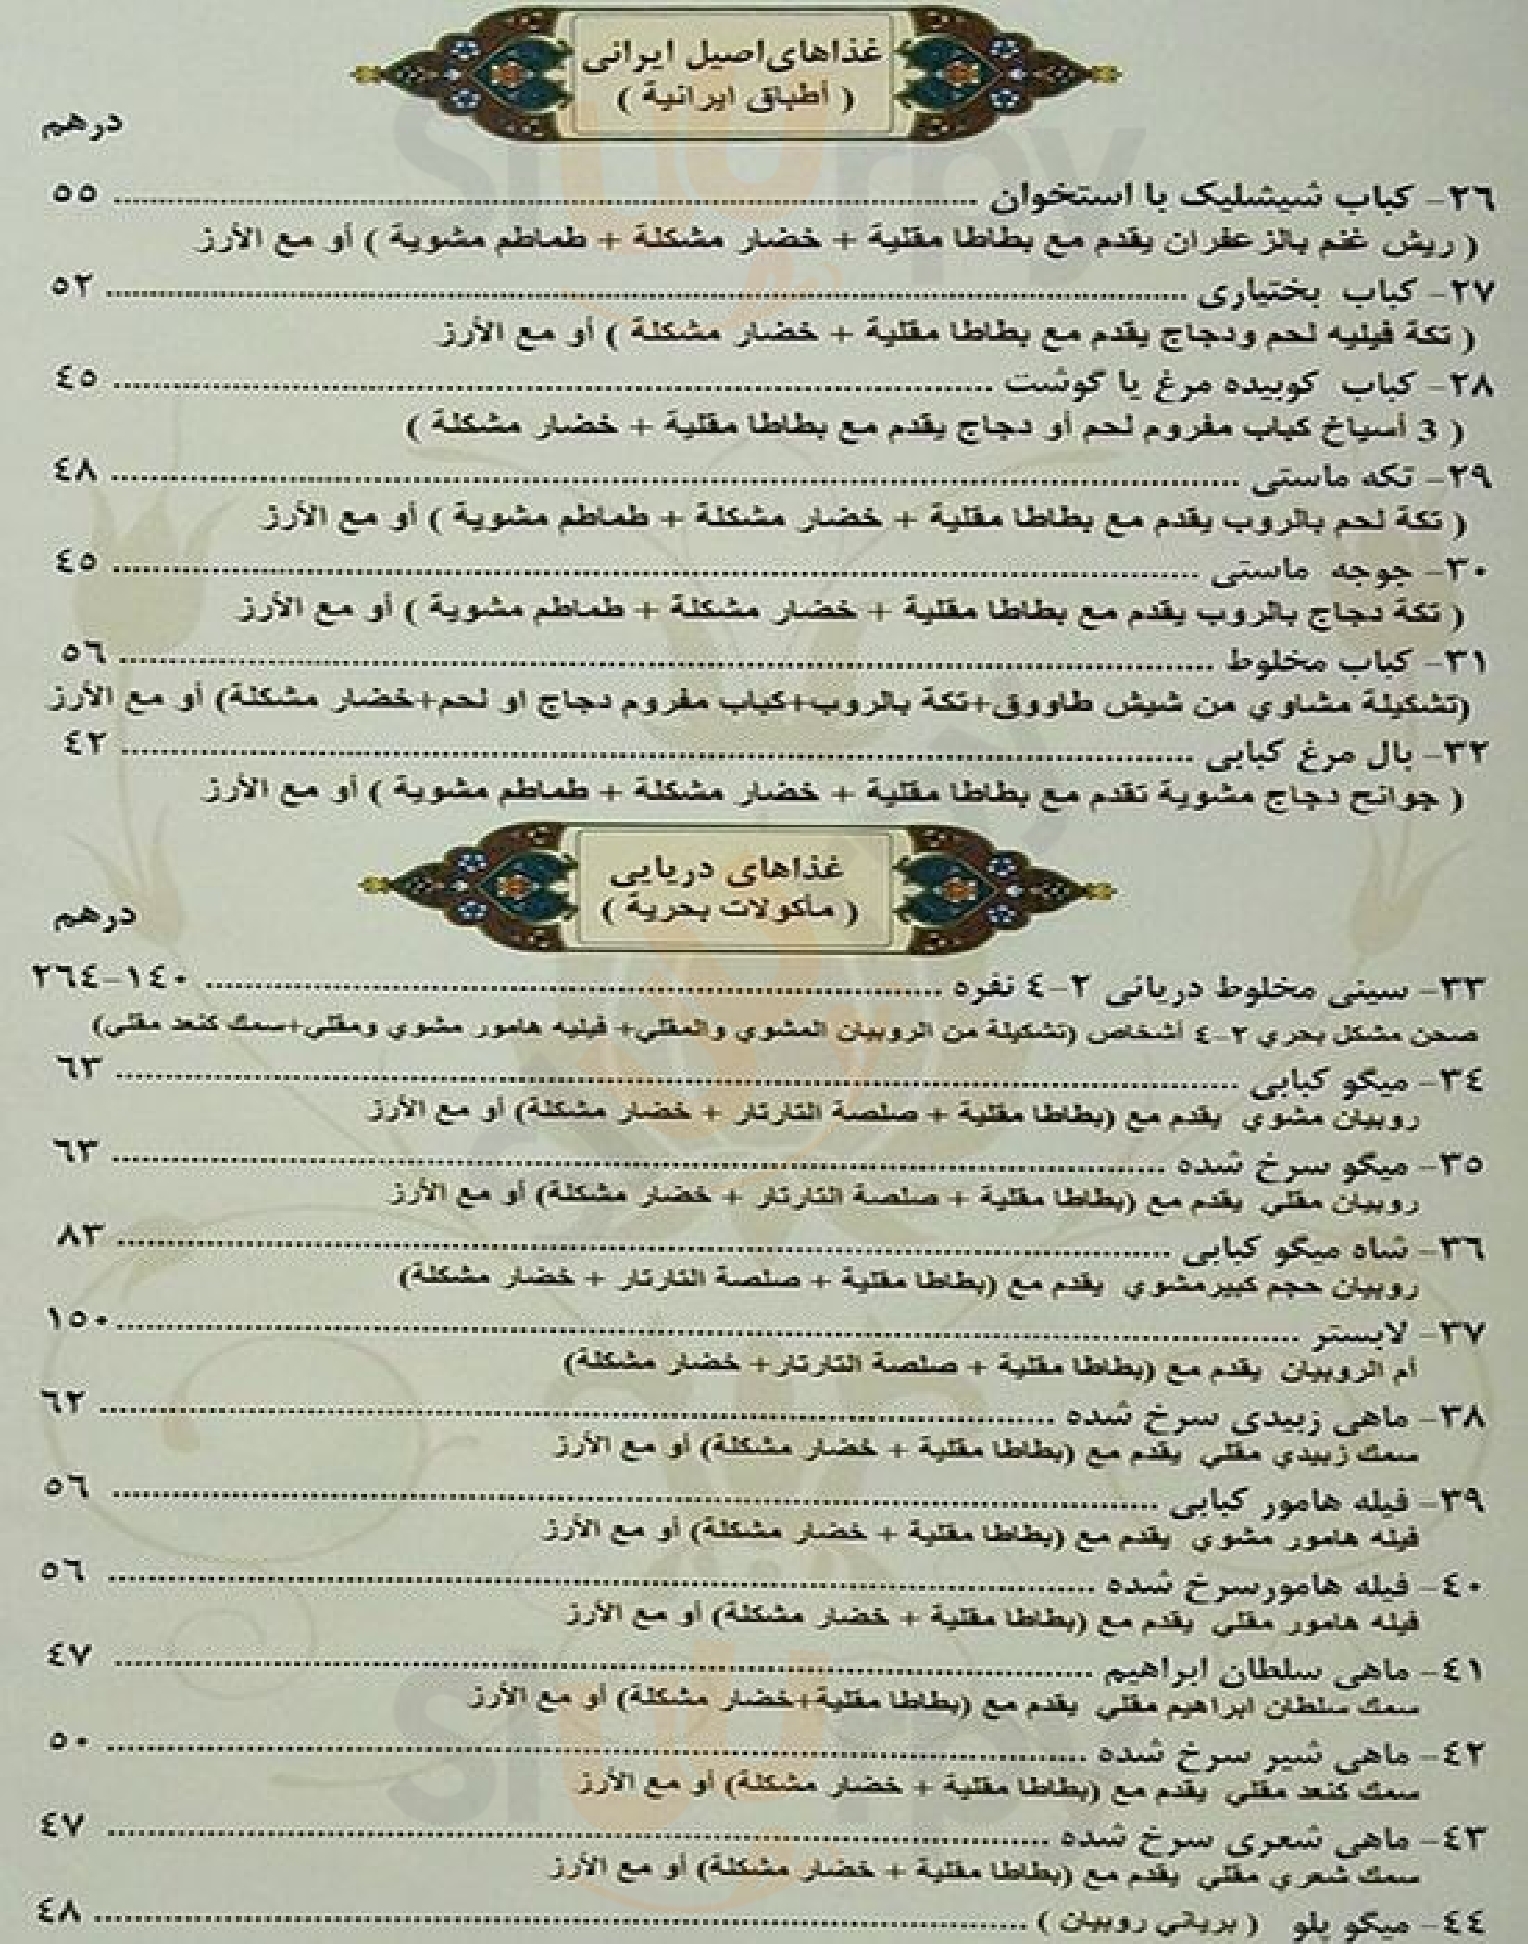 غذاهای اصیل ایرانی
( أطباق ايرانية )
درهم
٢٦- کباب شیشلیک با استخوان ........ ٥٥
( ريش غنم بالزعفران يقدم مع بطاطا مقلية + خضار مشكلة + طماطم مشوية ) أو مع الأرز
٢٧- کباب بختیاری ........ ٥٢
( تكة فيليه لحم ودجاج يقدم مع بطاطا مقلية + خضار مشكلة ) أو مع الأرز
٢٨- کباب کوبیده مرغ یا گوشت ........ ٤٥
( 3 أسياخ كباب مفروم لحم أو دجاج يقدم مع بطاطا مقلية + خضار مشكلة )
٢٩- تکه ماستی ........ ٤٨
( تكة لحم بالروب يقدم مع بطاطا مقلية + خضار مشكلة + طماطم مشوية ) أو مع الأرز
٣٠- جوجه ماستی ........ ٤٥
( تكة دجاج بالروب يقدم مع بطاطا مقلية + خضار مشكلة + طماطم مشوية ) أو مع الأرز
٣١- کباب مخلوط ........ ٥٦
(تشكيلة مشاوي من شيش طاووق+تكة بالروب+كباب مفروم دجاج او لحم+خضار مشكلة) أو مع الأرز
٣٢- بال مرغ کبابی ........ ٤٢
( جوانح دجاج مشوية تقدم مع بطاطا مقلية + خضار مشكلة + طماطم مشوية ) أو مع الأرز
غذاهای دریایی
( مأكولات بحرية )
درهم
٣٣- سینی مخلوط دریائی ٢-٤ نفره ........ ١٤٠-٢٦٤
صحن مشكل بحري ٢-٤ أشخاص (تشكيلة من الروبيان المشوي والمقلي+ فيليه هامور مشوي ومقلي+سمك كنعد مقلي)
٣٤- میگو کبابی ........ ٦٣
روبيان مشوي يقدم مع (بطاطا مقلية + صلصة التارتار + خضار مشكلة) أو مع الأرز
٣٥- میگو سرخ شده ........ ٦٣
روبيان مقلي يقدم مع (بطاطا مقلية + صلصة التارتار + خضار مشكلة) أو مع الأرز
٣٦- شاه میگو کبابی ........ ٨٣
روبيان حجم كبيرمشوي يقدم مع (بطاطا مقلية + صلصة التارتار + خضار مشكلة)
٣٧- لابستر ........ ١٥٠
أم الروبيان يقدم مع (بطاطا مقلية + صلصة التارتار+ خضار مشكلة)
٣٨- ماهی زبیدی سرخ شده ........ ٦٢
سمك زبيدي مقلي يقدم مع (بطاطا مقلية + خضار مشكلة) أو مع الأرز
٣٩- فیله هامور کبابی ........ ٥٦
فيله هامور مشوي يقدم مع (بطاطا مقلية + خضار مشكلة) أو مع الأرز
٤٠- فیله هامورسرخ شده ........ ٥٦
فيله هامور مقلي يقدم مع (بطاطا مقلية + خضار مشكلة) أو مع الأرز
٤١- ماهی سلطان ابراهیم ........ ٤٧
سمك سلطان ابراهيم مقلي يقدم مع (بطاطا مقلية+خضار مشكلة) أو مع الأرز
٤٢- ماهی شیر سرخ شده ........ ٥٠
سمك كنعد مقلي يقدم مع (بطاطا مقلية + خضار مشكلة) أو مع الأرز
٤٣- ماهی شعری سرخ شده ........ ٤٧
سمك شعري مقلي يقدم مع (بطاطا مقلية + خضار مشكلة) أو مع الأرز
٤٤- میگو پلو ( برياني روبيان ) ........ ٤٨
Slurrpy
Slurrpy